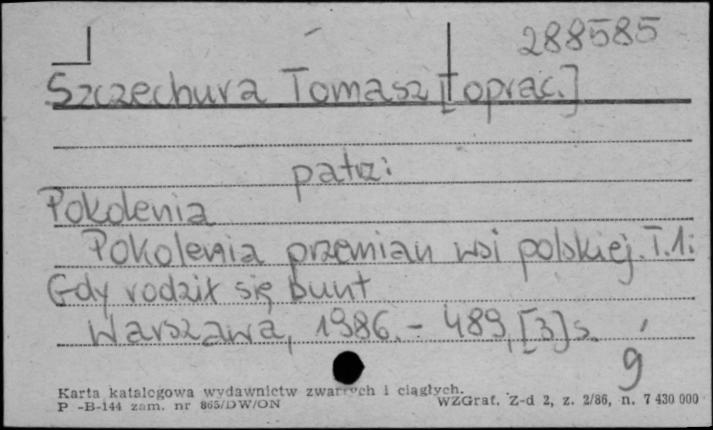 288585
Szczechura Tomasz [oprac.]
patrz:
Pokolenia
Pokolenia przemian wsi polskiej. T.1:
Gdy rodził się bunt
Warszawa, 1986. - 489, [3] s.
g
Karta katalogowa wydawnictw zwartych i ciągłych.
P -B-144 zam. nr 865/DW/ON
WZGraf. Z-d 2, z. 2/86, n. 7 430 000